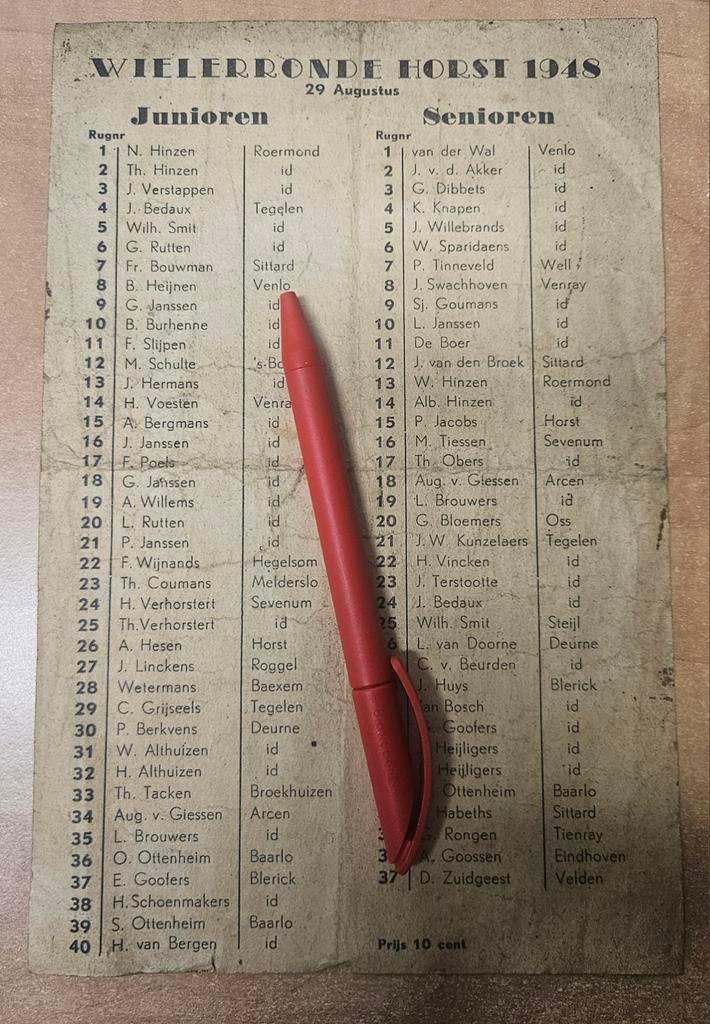 WIELERRONDE HORST 1948
29 Augustus
Junioren
Rugnr
1 N. Hinzen Roermond
2 Th. Hinzen id
3 J. Verstappen id
4 J. Bedaux Tegelen
5 Wilh. Smit id
6 G. Rutten id
7 Fr. Bouwman Sittard
8 B. Heijnen Venlo
9 G. Janssen id
10 B. Burhenne id
11 F. Slijpen id
12 M. Schulte
13 J. Hermans id
14 H. Voesten
15 A. Bergmans id
16 J. Janssen id
17 F. Poels id
18 G. Janssen id
19 A. Willems id
20 L. Rutten id
21 P. Janssen id
22 F. Wijnands Hegelsom
23 Th. Coumans Melderslo
24 H. Verhorstert Sevenum
25 Th.Verhorstert id
26 A. Hesen Horst
27 J. Linckens Roggel
28 Wetermans Baexem
29 C. Grijseels Tegelen
30 P. Berkvens Deurne
31 W. Althuizen id
32 H. Althuizen id
33 Th. Tacken Broekhuizen
34 Aug. v. Giessen Arcen
35 L. Brouwers id
36 O. Ottenheim Baarlo
37 E. Goofers Blerick
38 H.Schoenmakers id
39 S. Ottenheim Baarlo
40 H. van Bergen id
Senioren
Rugnr
1 van der Wal Venlo
2 J. v. d. Akker id
3 G. Dibbets id
4 K. Knapen id
5 J. Willebrands id
6 W. Sparidaens id
7 P. Tinneveld Well
8 J. Swachhoven Venray
9 Sj. Goumans id
10 L. Janssen id
11 De Boer id
12 J. van den Broek Sittard
13 W. Hinzen Roermond
14 Alb. Hinzen id
15 P. Jacobs Horst
16 M. Tiessen Sevenum
17 Th. Obers id
18 Aug. v. Giessen Arcen
19 L. Brouwers id
20 G. Bloemers Oss
21 J.W. Kunzelaers Tegelen
22 H. Vincken id
23 J. Terstootte id
24 J. Bedaux id
25 Wilh. Smit Steijl
L. van Doorne Deurne
C. v. Beurden id
J. Huys Blerick
Bosch id
Goofers id
Heijligers id
Heijligers id
Ottenheim Baarlo
Habeths Sittard
Rongen Tienray
A. Goossen Eindhoven
37 D. Zuidgeest Velden
Prijs 10 cent